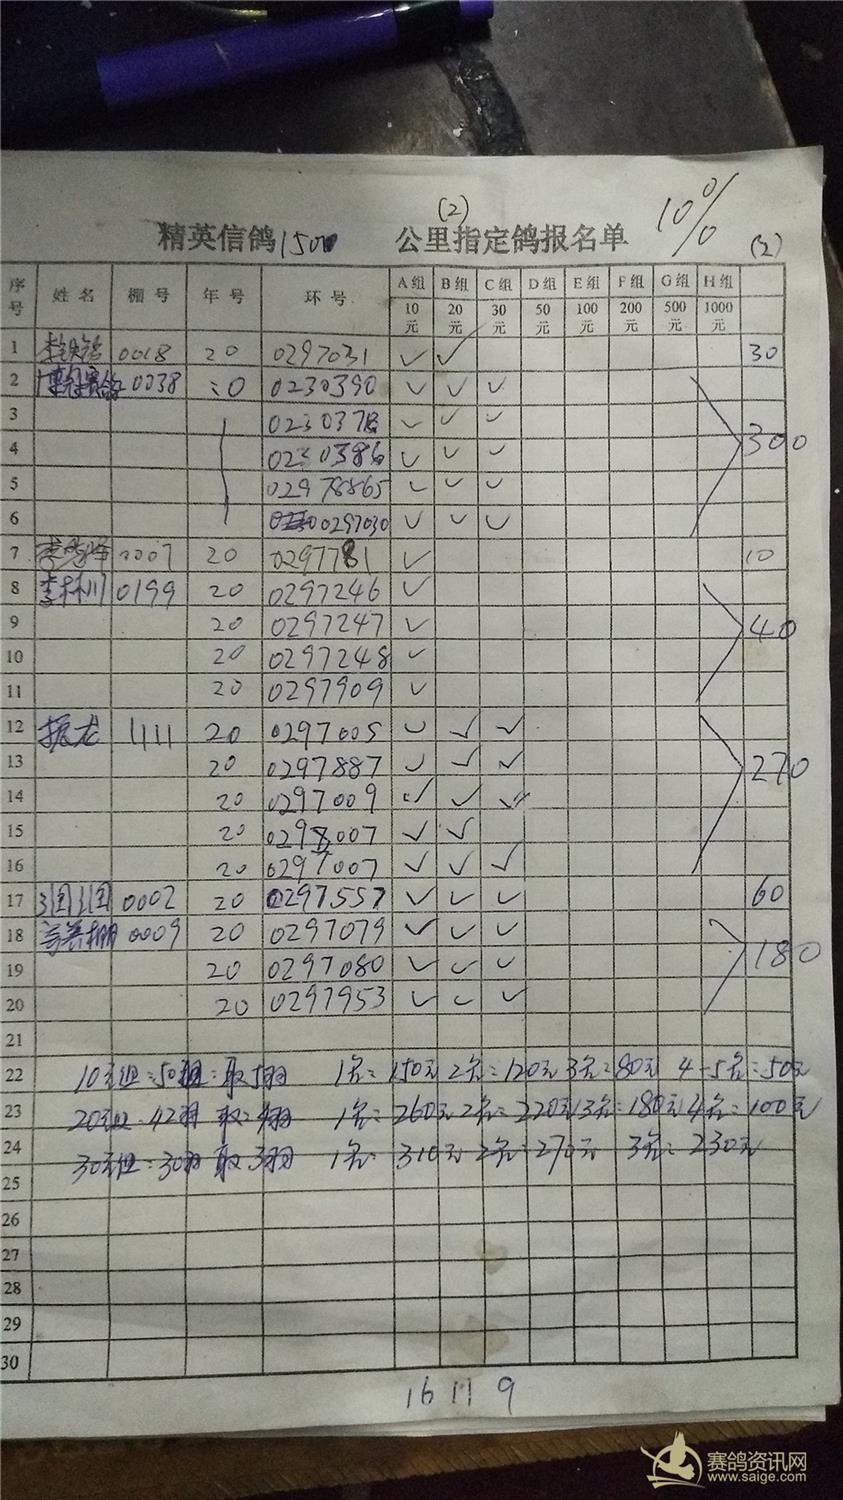 (2) 10%
精英信鸽1500 公里指定鸽报名单 (2)
序号 姓名 棚号 年号 环号 A组 B组 C组 D组 E组 F组 G组 H组
10元 20元 30元 50元 100元 200元 500元 1000元
1 0018 20 0297031 ✓ ✓ 30
2 0038 20 0230390 ✓ ✓ ✓
3 0230378 ✓ ✓ ✓
4 0230386 ✓ ✓ ✓ 300
5 02978865 ✓ ✓ ✓
6 0297030 ✓ ✓ ✓
7 0007 20 0297781 ✓ 10
8 李林川 0199 20 0297246 ✓
9 20 0297247 ✓ 40
10 20 0297248 ✓
11 20 0297909 ✓
12 振龙 1111 20 0297005 ✓ ✓ ✓
13 20 0297887 ✓ ✓ ✓ 270
14 20 0297009 ✓ ✓ ✓
15 20 0298007 ✓ ✓
16 20 0297007 ✓ ✓ ✓
17 0002 20 0297557 ✓ ✓ ✓ 60
18 0009 20 0297079 ✓ ✓ ✓
19 20 0297080 ✓ ✓ ✓ 180
20 20 0297953 ✓ ✓ ✓
21
22 10元组:50羽:取5羽 1名:150元 2名:120元 3名:80元 4-5名:50元
23 20元组:42羽 取:4羽 1名:260元 2名:220元 3名:180元 4名:100元
24 30元组:30羽 取3羽 1名:310元 2名:270元 3名:230元
25
26
27
28
29
30
16 11 9
赛鸽资讯网
www.saige.com